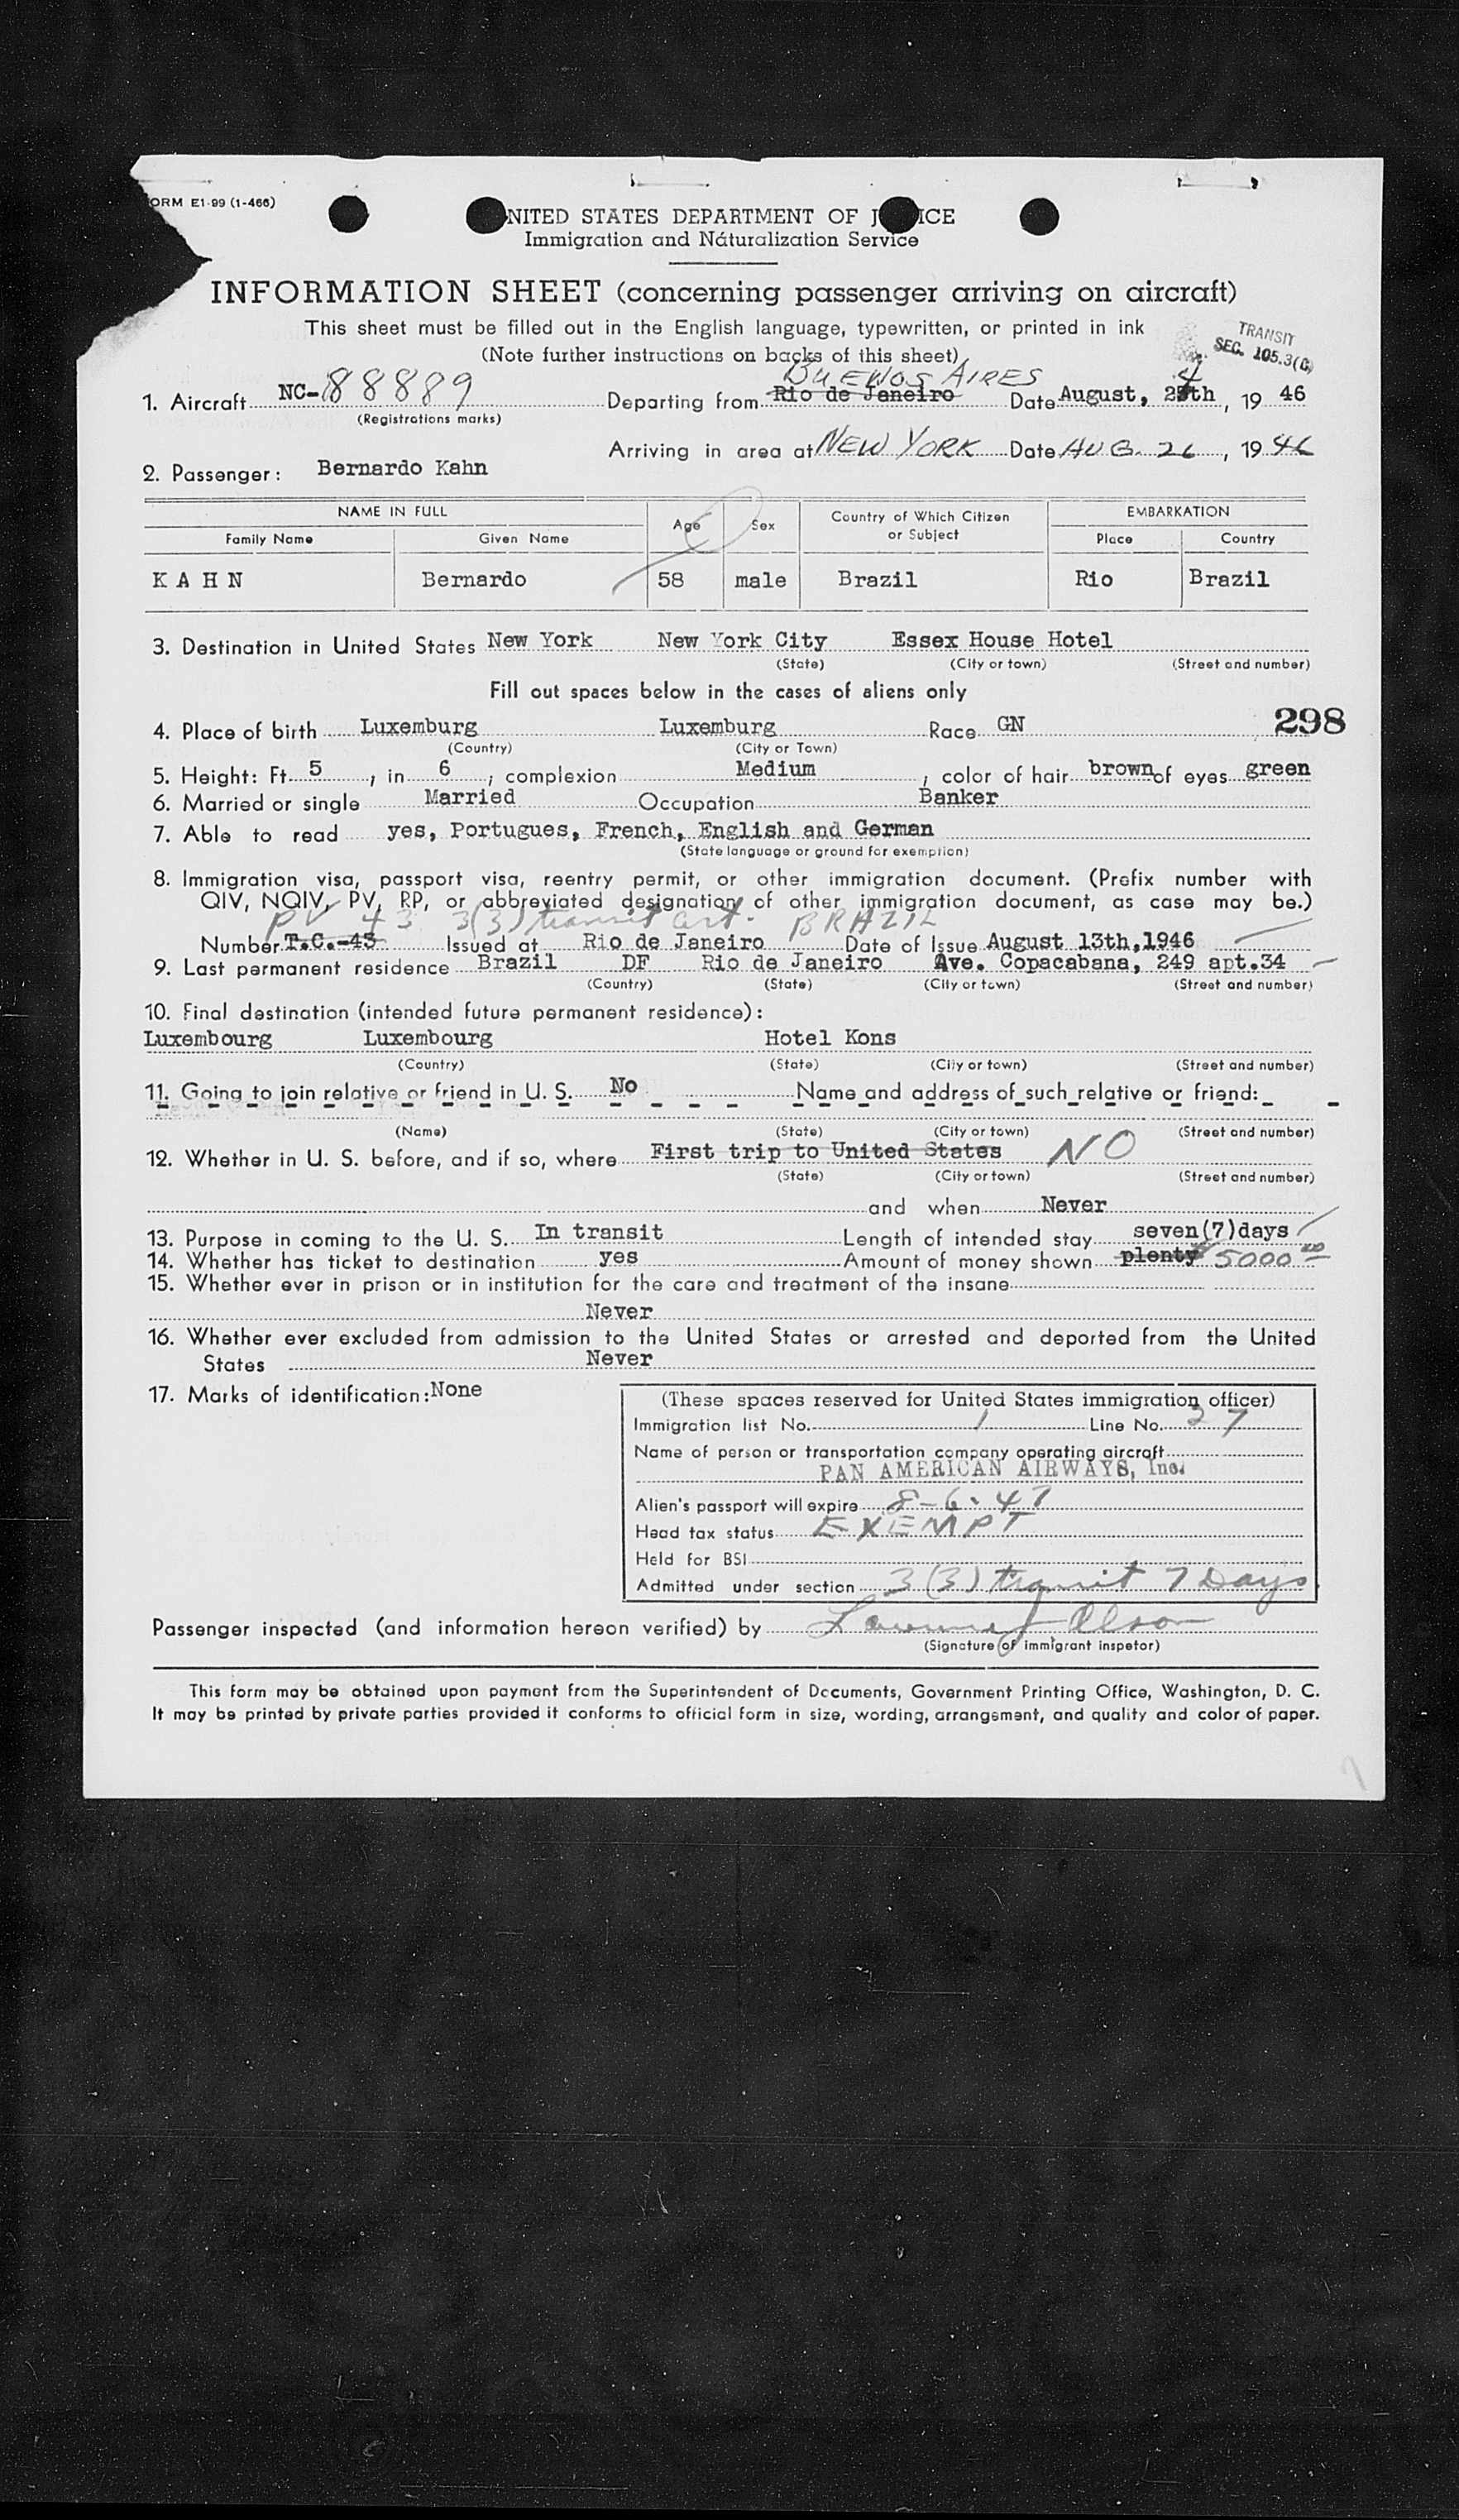 ORM E1-99 (1-466)
NITED STATES DEPARTMENT OF J ICE
Immigration and Naturalization Service
INFORMATION SHEET (concerning passenger arriving on aircraft)
This sheet must be filled out in the English language, typewritten, or printed in ink
(Note further instructions on backs of this sheet)
TRANSIT
SEC. 105.3(C)
BUENOS AIRES
1. Aircraft NC-88889 Departing from Rio de Janeiro Date August, 24th, 19 46
(Registrations marks)
Arriving in area at NEW YORK Date AUG. 26, 19 46
2. Passenger: Bernardo Kahn
NAME IN FULL Age Sex Country of Which Citizen or Subject EMBARKATION
Family Name Given Name Place Country
KAHN Bernardo 58 male Brazil Rio Brazil
3. Destination in United States New York New York City Essex House Hotel
(State) (City or town) (Street and number)
Fill out spaces below in the cases of aliens only
298
4. Place of birth Luxemburg Luxemburg Race GN
(Country) (City or Town)
5. Height: Ft. 5, in 6, complexion Medium, color of hair brown of eyes green
6. Married or single Married Occupation Banker
7. Able to read yes, Portugues, French, English and German
(State language or ground for exemption)
8. Immigration visa, passport visa, reentry permit, or other immigration document. (Prefix number with
QIV, NQIV, PV, RP, or abbreviated designation of other immigration document, as case may be.)
PV 43 3(3) transit cert. BRAZIL
Number T.C.-43 Issued at Rio de Janeiro Date of Issue August 13th,1946
9. Last permanent residence Brazil DF Rio de Janeiro Ave. Copacabana, 249 apt.34
(Country) (State) (City or town) (Street and number)
10. Final destination (intended future permanent residence):
Luxembourg Luxembourg Hotel Kons
(Country) (State) (City or town) (Street and number)
11. Going to join relative or friend in U. S. No Name and address of such relative or friend:
(Name) (State) (City or town) (Street and number)
12. Whether in U. S. before, and if so, where First trip to United States NO
(State) (City or town) (Street and number)
and when Never
13. Purpose in coming to the U. S. In transit Length of intended stay seven(7)days
14. Whether has ticket to destination yes Amount of money shown plenty 5000 00
15. Whether ever in prison or in institution for the care and treatment of the insane
Never
16. Whether ever excluded from admission to the United States or arrested and deported from the United
States Never
17. Marks of identification: None
(These spaces reserved for United States immigration officer)
Immigration list No. 1 Line No. 27
Name of person or transportation company operating aircraft
PAN AMERICAN AIRWAYS, Inc.
Alien's passport will expire 8-6-47
Head tax status EXEMPT
Held for BSI
Admitted under section 3(3) transit 7 Days
Passenger inspected (and information hereon verified) by
(Signature of immigrant inspetor)
This form may be obtained upon payment from the Superintendent of Documents, Government Printing Office, Washington, D. C.
It may be printed by private parties provided it conforms to official form in size, wording, arrangement, and quality and color of paper.